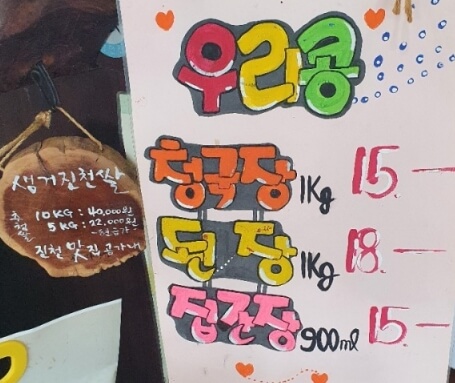 우리콩
청국장 1Kg 15.—
된장 1Kg 18.—
집간장 900ml 15.—
생거진천쌀
10KG : 40,000원
5KG : 22,000원
진천 맛집 곰가내